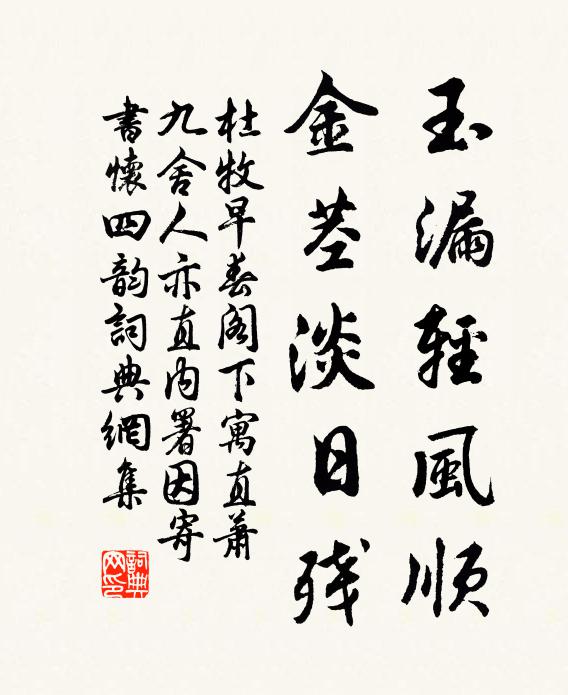 玉漏輕風順
金莖淡日残
杜牧早春阁下寓直蕭
九舍人亦直内署因寄
書懷四韵詞典網集
詞典网印